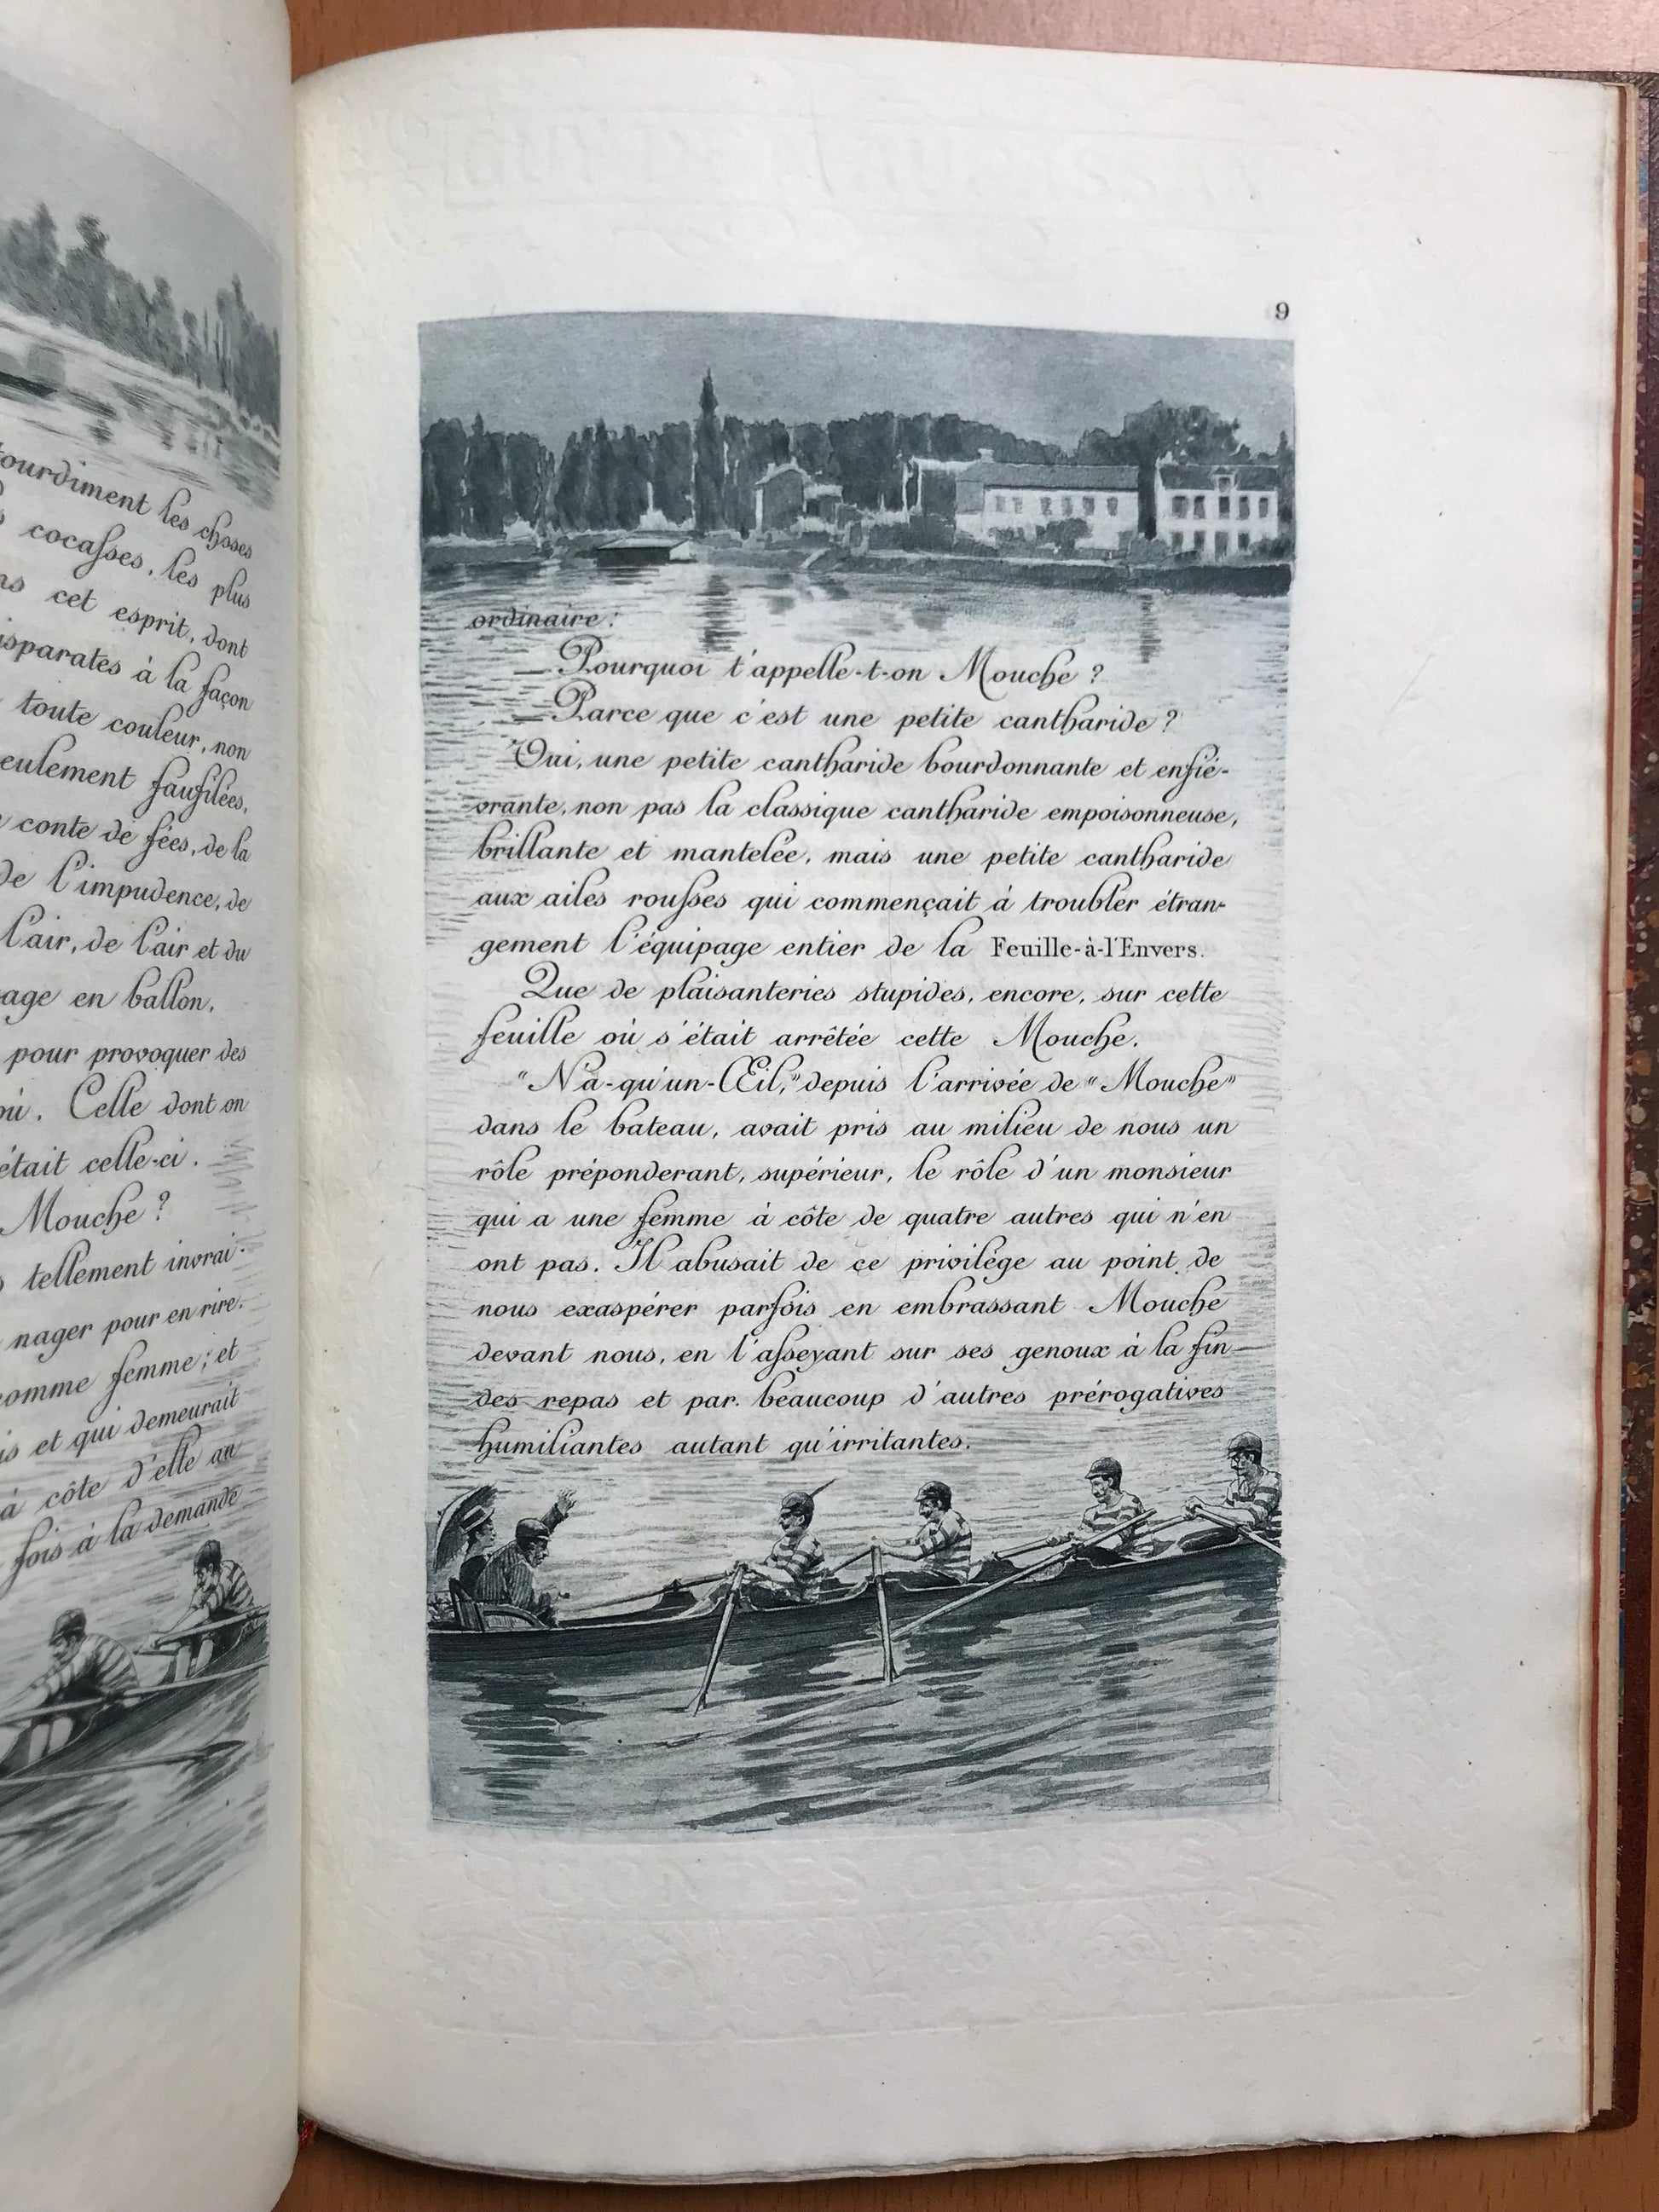 les choses
cocaſses, les plus
cet esprit, dont
à la façon
toute couleur, non
faufilées,
conte de fées, de la
de l'impudence, de
l'air, de l'air et du
en ballon,
pour provoquer des
Celle dont on
était celle-ci.
Mouche ?
tellement invrai-
nager pour en rire.
comme femme ; et
et qui demeurait
à côte d'elle au
fois à la demande
9
ordinaire :
— Pourquoi t'appelle-t-on Mouche ?
— Parce que c'est une petite cantharide ?
Oui, une petite cantharide bourdonnante et enfié-
vrante, non pas la classique cantharide empoisonneuse,
brillante et mantelée, mais une petite cantharide
aux ailes rouſses qui commençait à troubler étran-
gement l'équipage entier de la Feuille-à-l'Envers.
Que de plaisanteries stupides, encore, sur cette
feuille où s'était arrêtée cette Mouche.
"N'a-qu'un-Œil," depuis l'arrivée de "Mouche"
dans le bateau, avait pris au milieu de nous un
rôle préponderant, supérieur, le rôle d'un monsieur
qui a une femme à côte de quatre autres qui n'en
ont pas. Il abusait de ce privilége au point de
nous exaspérer parfois en embrassant Mouche
devant nous, en l'aſseyant sur ses genoux à la fin
des repas et par beaucoup d'autres prérogatives
humiliantes autant qu'irritantes.